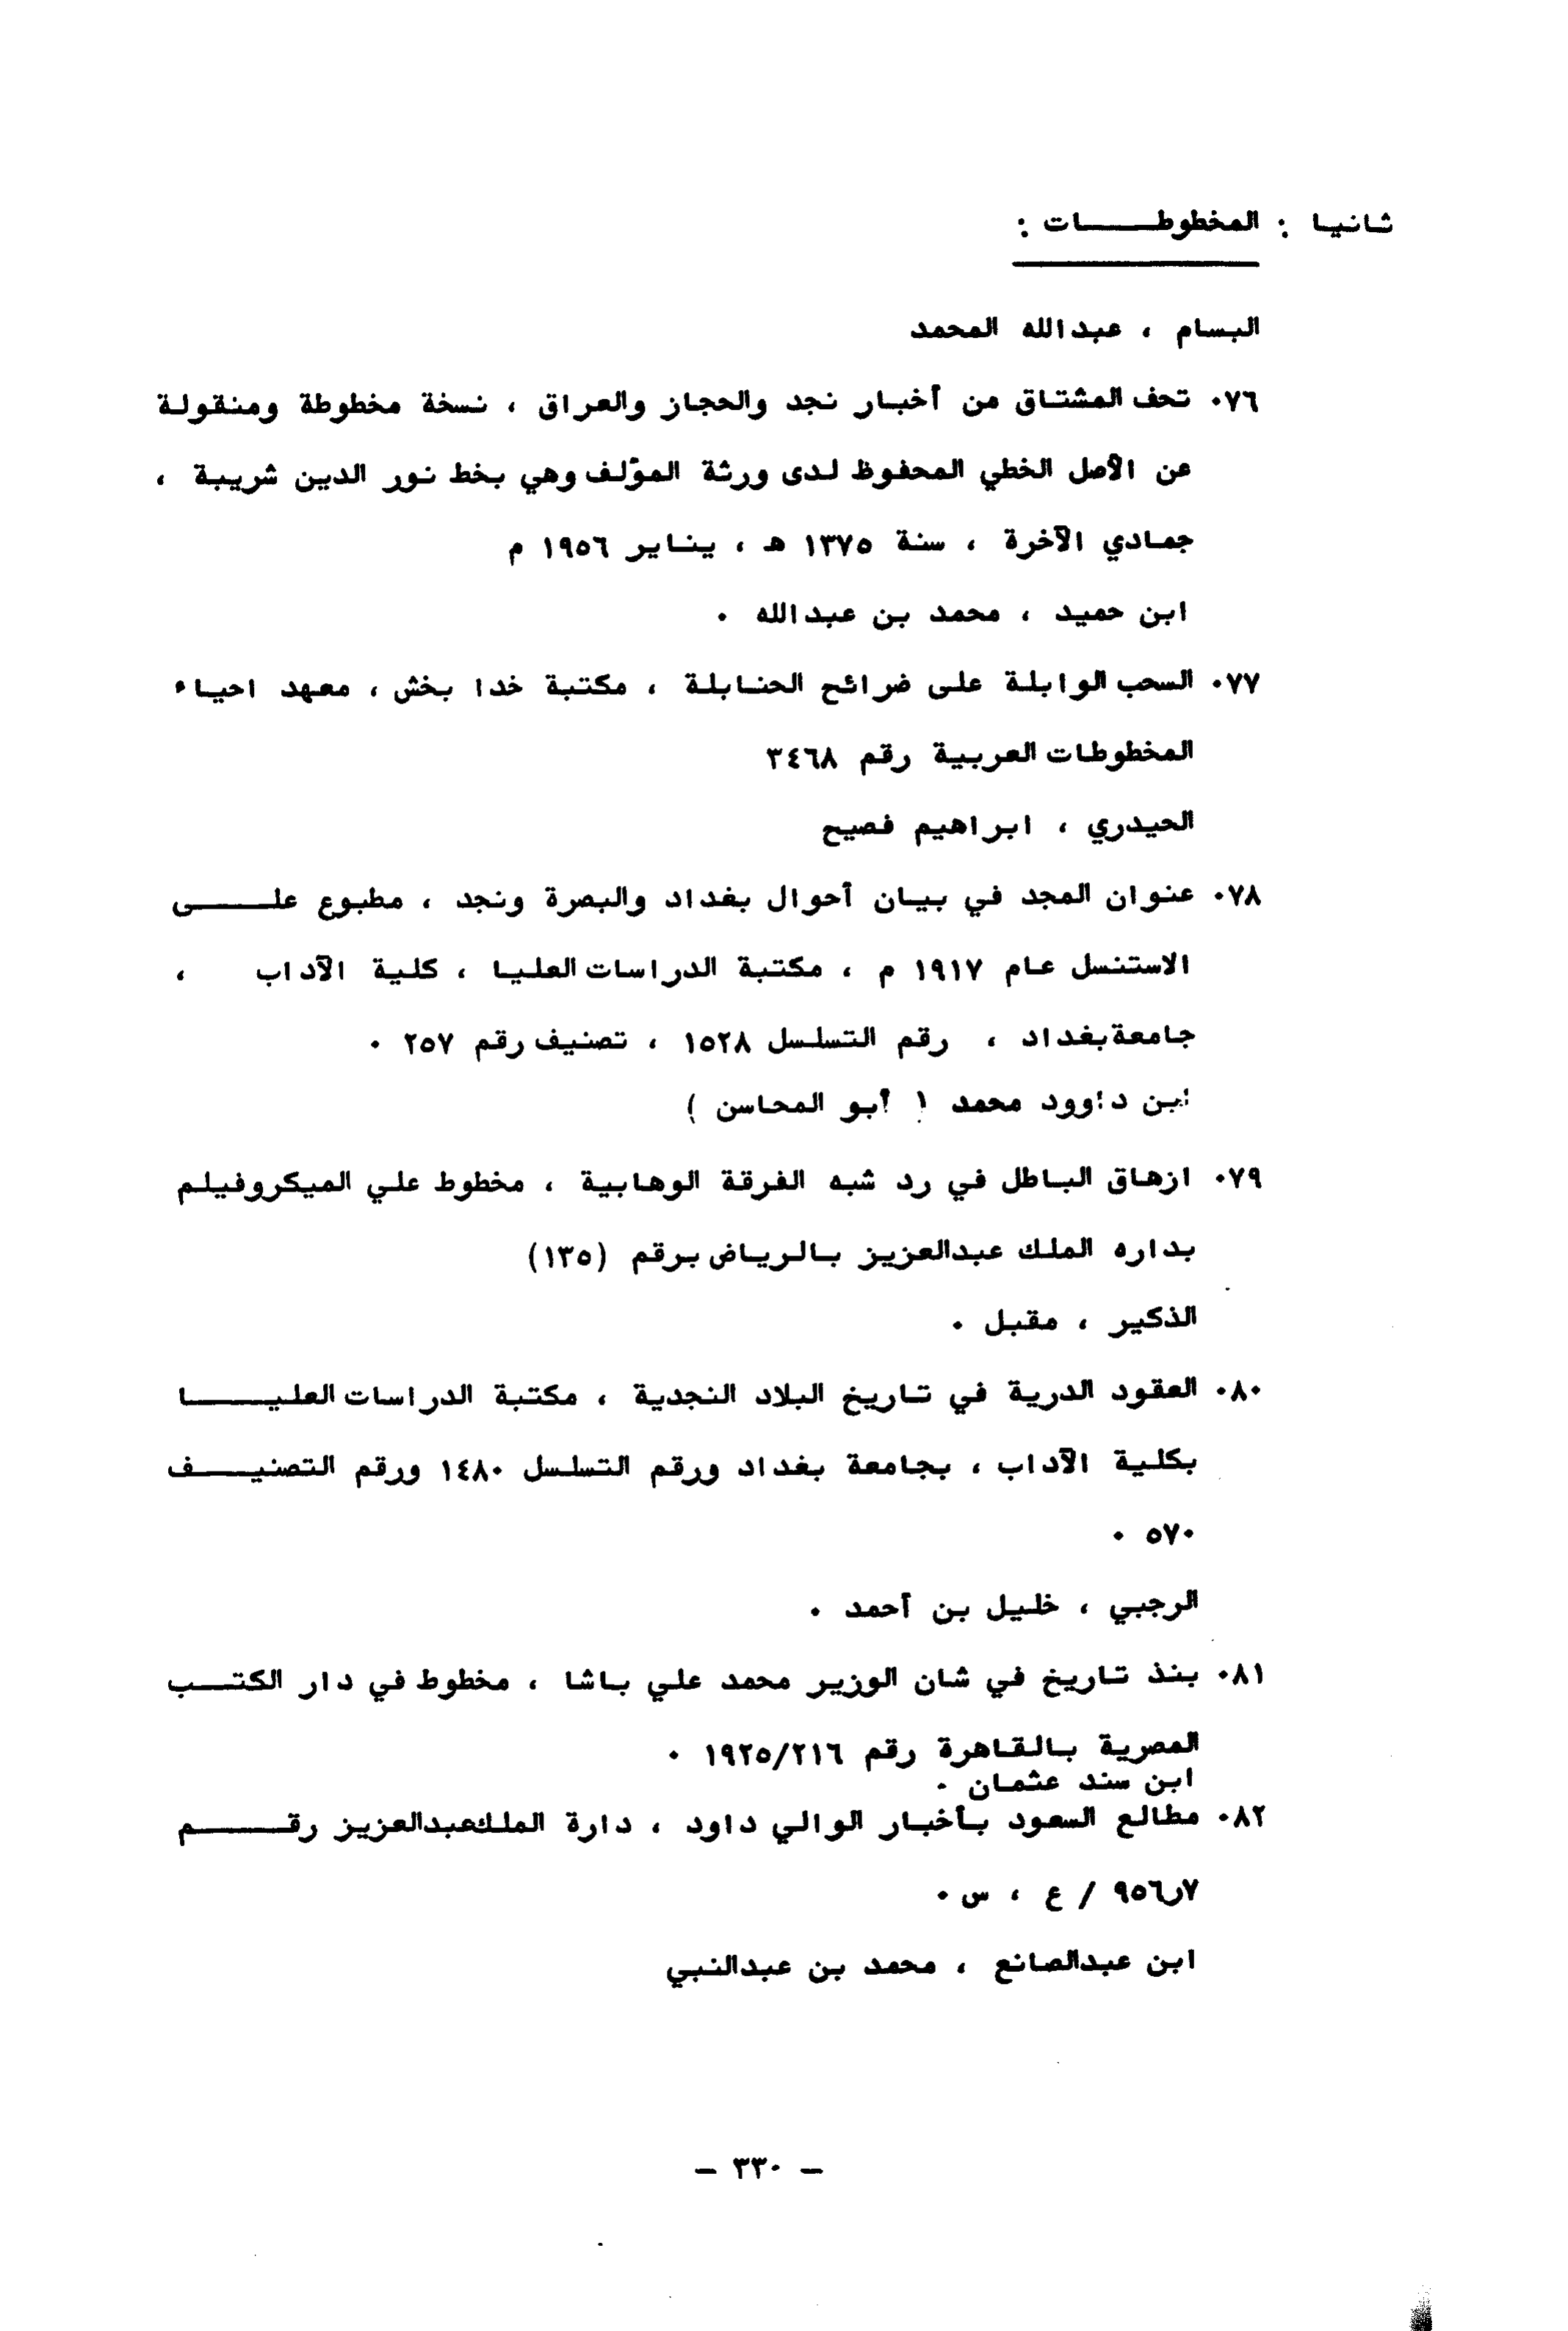 ثانيا : المخطوطات :
البسام ، عبدالله المحمد
٠٧٦ تحف المشتاق من أخبار نجد والحجاز والعراق ، نسخة مخطوطة ومنقولة
عن الأصل الخطي المحفوظ لدى ورثة المؤلف وهي بخط نور الدين شريبة ،
جمادي الآخرة ، سنة ١٣٧٥ هـ ، يناير ١٩٥٦ م
ابن حميد ، محمد بن عبدالله ٠
٠٧٧ السحب الوابلة على ضرائح الحنابلة ، مكتبة خدا بخش ، معهد احياء
المخطوطات العربية رقم ٣٤٦٨
الحيدري ، ابراهيم فصيح
٠٧٨ عنوان المجد في بيان أحوال بغداد والبصرة ونجد ، مطبوع على
الاستنسل عام ١٩١٧ م ، مكتبة الدراسات العليا ، كلية الآداب ،
جامعة بغداد ، رقم التسلسل ١٥٢٨ ، تصنيف رقم ٢٥٧ ٠
ابن داوود محمد ( أبو المحاسن )
٠٧٩ ازهاق الباطل في رد شبه الفرقة الوهابية ، مخطوط علي الميكروفيلم
بداره الملك عبدالعزيز بالرياض برقم (١٣٥)
الذكير ، مقبل ٠
٠٨٠ العقود الدرية في تاريخ البلاد النجدية ، مكتبة الدراسات العليا
بكلية الآداب ، بجامعة بغداد ورقم التسلسل ١٤٨٠ ورقم التصنيف
٥٧٠ ٠
الرجبي ، خليل بن أحمد ٠
٠٨١ بنذ تاريخ في شان الوزير محمد علي باشا ، مخطوط في دار الكتب
المصرية بالقاهرة رقم ١٩٢٥/٢١٦ ٠
ابن سند عثمان ٠
٠٨٢ مطالع السعود بأخبار الوالي داود ، دارة الملك عبدالعزيز رقم
٩٥٦ر٧ / ع ، س ٠
ابن عبدالصانع ، محمد بن عبدالنبي
– ٣٣٠ –